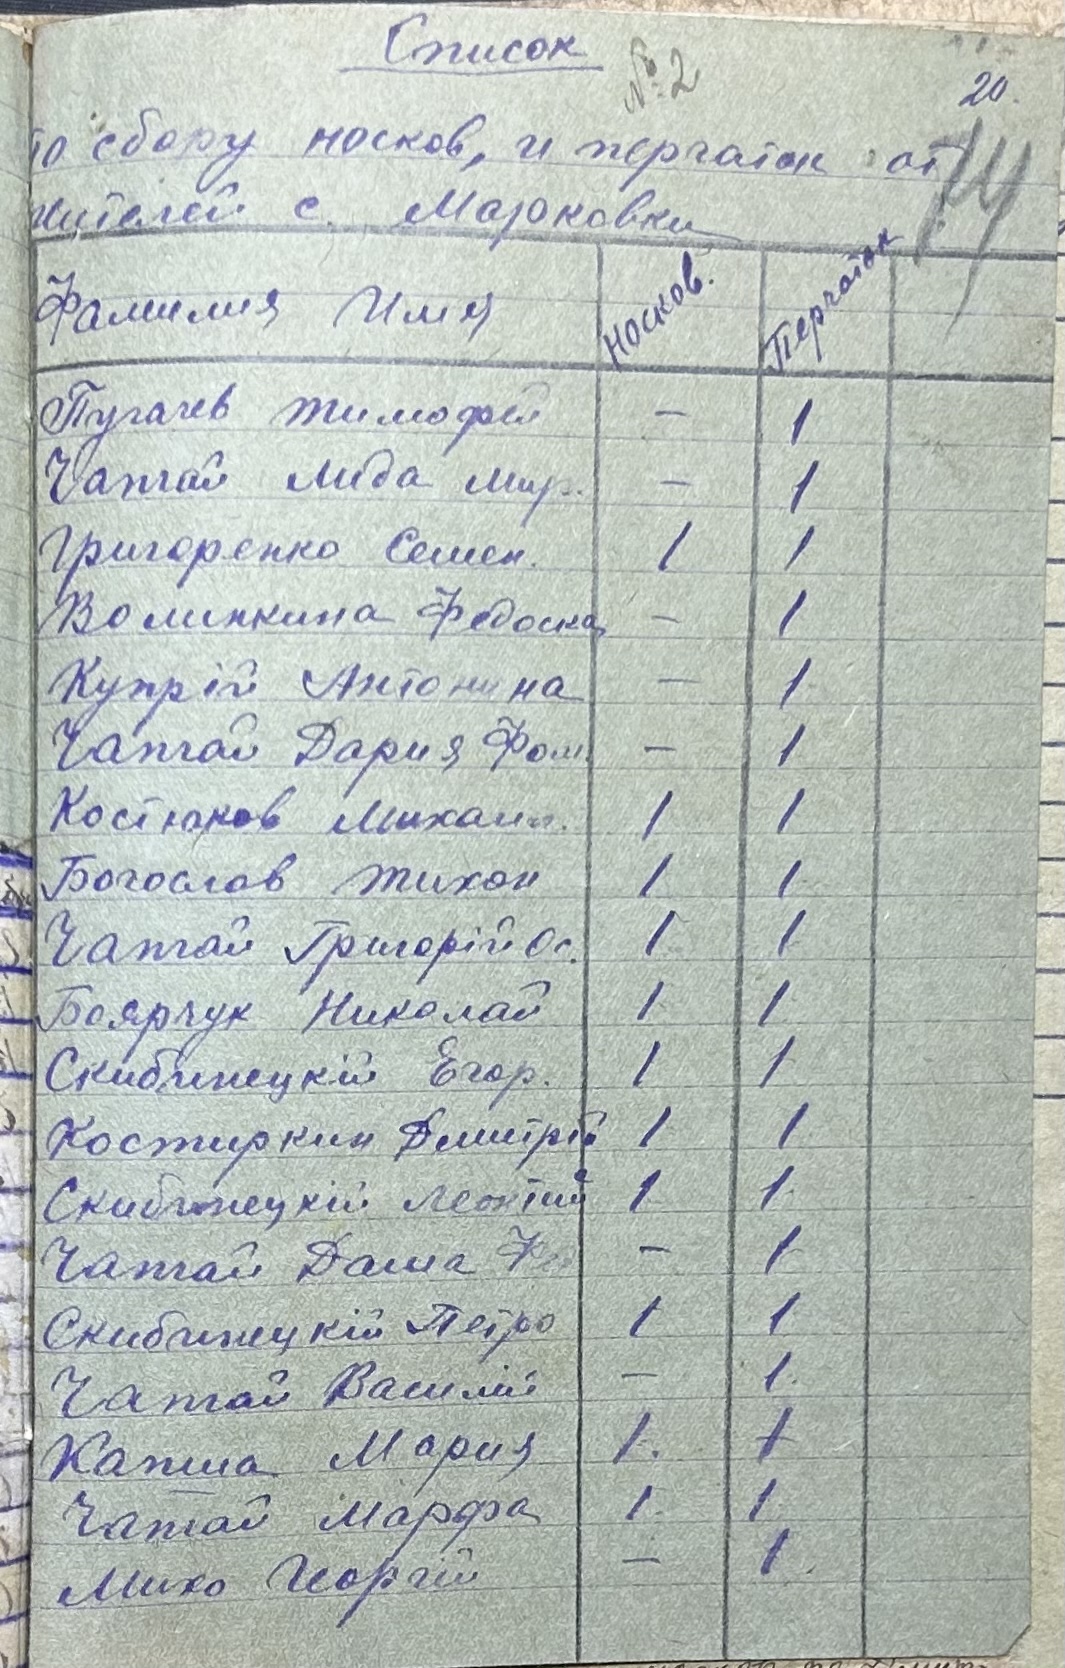 Список
№ 2
20.
по сбору носков, и перчаток от
жителей с. Мазоковки
Фамилия Имя Носков. Перчаток
Пугачев Тимофей — 1
Чапгай Лида Мир. — 1
Григоренко Семен. 1 1
Волинкина Федоска — 1
Купрій Антонина — 1
Чапгай Дария Фом. — 1
Костюков Михаил. 1 1
Богослав Тихон 1 1
Чапгай Григорій Ос. 1 1
Боярчук Николай 1 1
Скибинецкій Егор. 1 1
Костиркин Дмитрій 1 1
Скибинецкій Леонтий 1 1
Чапгай Даша — 1
Скибинецкій Петро 1 1
Чапгай Василій — 1.
Капша Мария 1. 1
Чапгай Марфа 1. 1
Михо Георгій — 1.